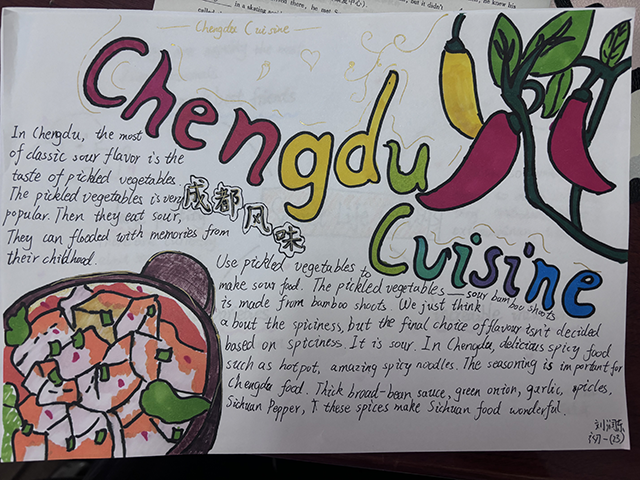 Chengdu Cuisine
Chengdu
Cuisine
成都风味
In Chengdu, the most
of classic sour flavor is the
taste of pickled vegetables.
The pickled vegetables is very
popular. Then they eat sour,
They can flooded with memories from
their childhood.
Use pickled vegetables to
make sour food. The pickled vegetables — sour bamboo shoots
is made from bamboo shoots. We just think
about the spiciness, but the final choice of flavour isn't decided
based on spiciness. It is sour. In Chengdu, delicious spicy food
such as hotpot, amazing spicy noodles. The seasoning is important for
Chengdu food. Thick broad-bean sauce, green onion, garlic, spicies,
Sichuan Pepper, these spices make Sichuan food wonderful.